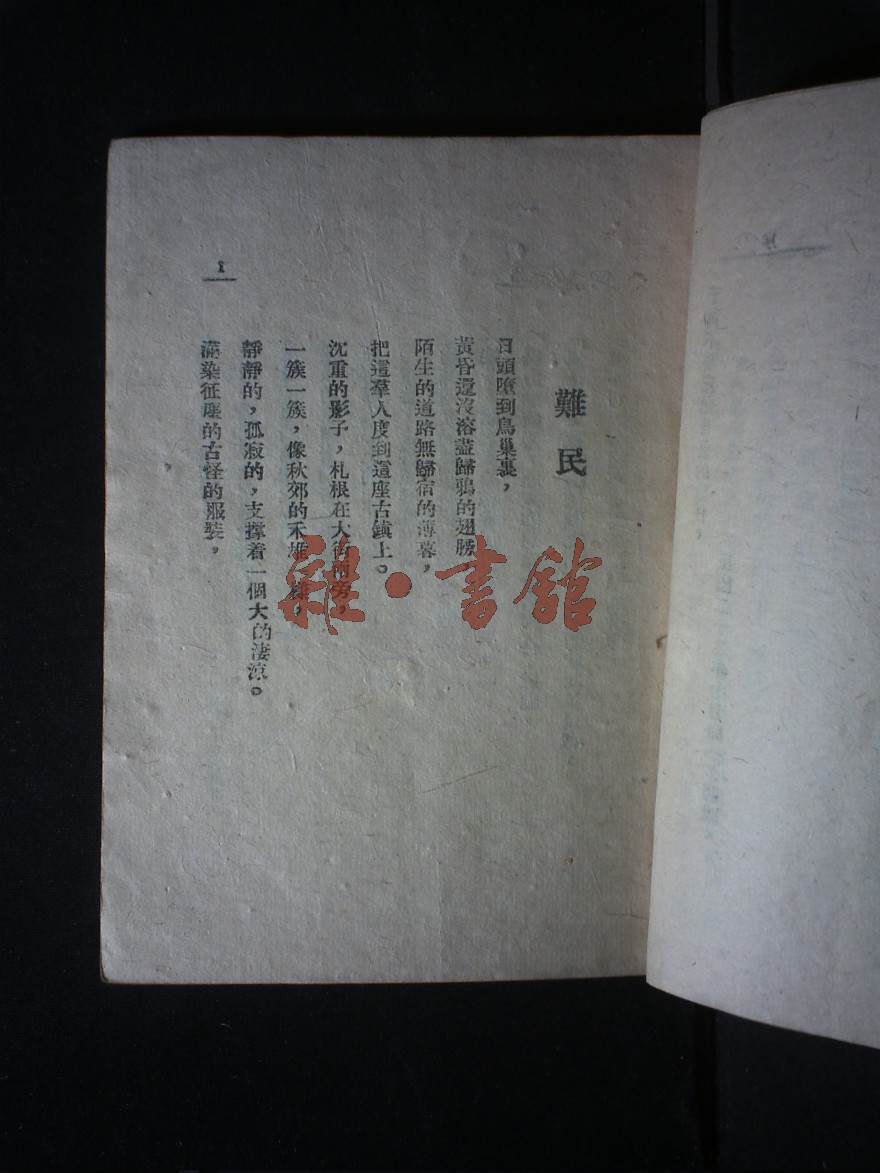 難民
日頭墮到鳥巢裏，
黃昏還沒溶盡歸鴉的翅膀
陌生的道路無歸宿的薄暮，
把這羣人度到這座古鎮上。
沉重的影子，札根在大街兩旁，
一簇一簇，像秋郊的禾堆一樣，
靜靜的，孤寂的，支撐着一個大的淒涼。
滿染征塵的古怪的服裝，
1
雜·書館